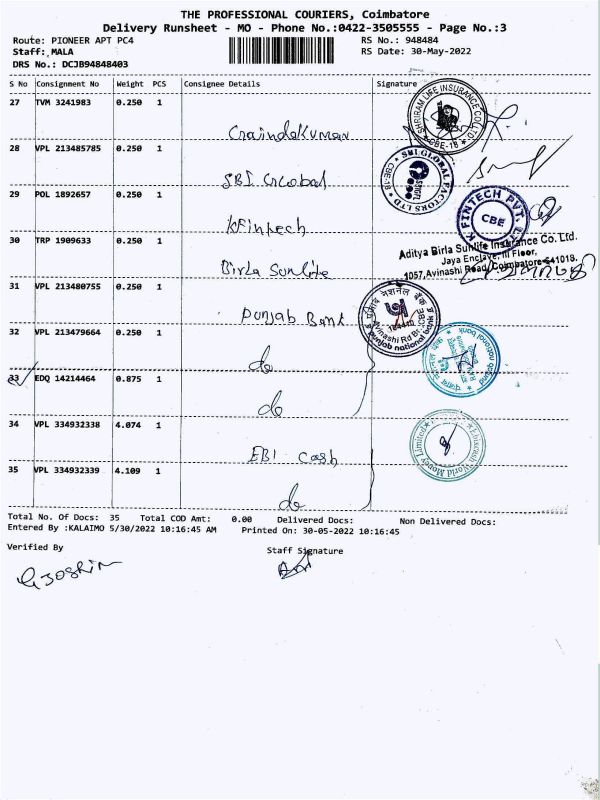 THE PROFESSIONAL COURIERS, Coimbatore
Delivery Runsheet - MO - Phone No.:0422-3505555 - Page No.:3
Route: PIONEER APT PC4 RS No.: 948484
Staff: MALA RS Date: 30-May-2022
DRS No.: DCJB94848403
S No Consignment No Weight PCS Consignee Details Signature
27 TVM 3241983 0.250 1
SHRIRAM LIFE INSURANCE CO. LTD. CBE-18
28 VPL 213485785 0.250 1
SBI Global
SBI GLOBAL FACTORS LTD CBE-18
29 POL 1892657 0.250 1
KFintech
K FINTECH PVT. LTD CBE
30 TRP 1909633 0.250 1
Birla Sunlife
Aditya Birla Sunlife Insurance Co. Ltd.
Jaya Enclave, III Floor,
1057, Avinashi Road, Coimbatore-641018.
31 VPL 213480755 0.250 1
Punjab Bank
पंजाब नैशनल बैंक
punjab national bank
Avinashi Rd Br. CBE
32 VPL 213479664 0.250 1
do
punjab national bank
33 EDQ 14214464 0.875 1
do
34 VPL 334932338 4.074 1
EBI Cash
Ebixcash World Money Limited
35 VPL 334932339 4.109 1
do
Total No. Of Docs: 35 Total COD Amt: 0.00 Delivered Docs: Non Delivered Docs:
Entered By :KALAIMO 5/30/2022 10:16:45 AM Printed On: 30-05-2022 10:16:45
Verified By Staff Signature